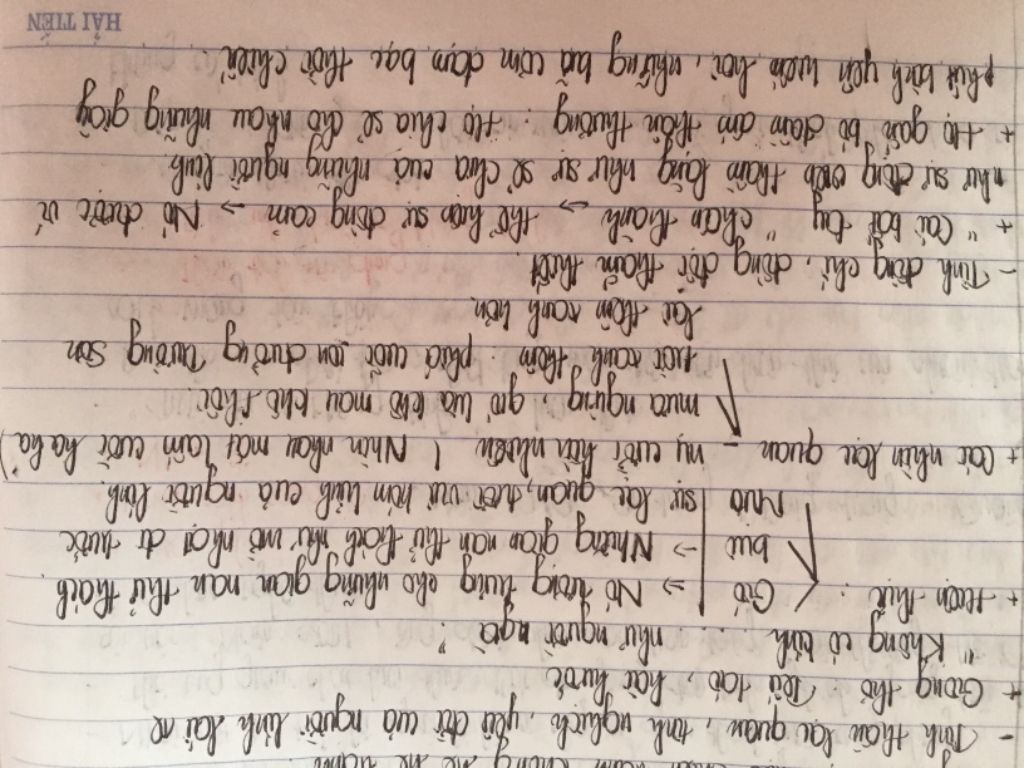 không hề
- Tinh thần lạc quan, tinh nghịch, yêu đời của người lính lái xe
+ Giọng thơ tếu táo, hài hước
" Không có kính ..... như người già".
+ : Gió → Nó tượng trưng cho những gian nan thử thách.
bụi → Những gian nan thử thách như mờ nhạt đi trước
Mưa sự lạc quan, tươi vui hóm hỉnh của người lính.
+ Cái nhìn lạc quan - nụ cười hồn nhiên ( Nhìn nhau mặt lấm cười ha ha )
mưa ngừng, gió lùa khô mau thôi
xanh thêm phía cuối con đường Trường Sơn
lại thêm xanh hơn
- Tình đồng chí, đồng đội thắm thiết.
+ "Cái bắt tay" chân thành → thể hiện sự đồng cảm → Nó được ví
như sự động viên thầm lặng như sự sẻ chia của những người lính.
+ Họ gắn bó đầm ấm thân thương. Họ chia sẻ cho nhau những giây
phút bình yên hiếm hoi, những bữa cơm đạm bạc thời chiến.
HẢI TIẾN